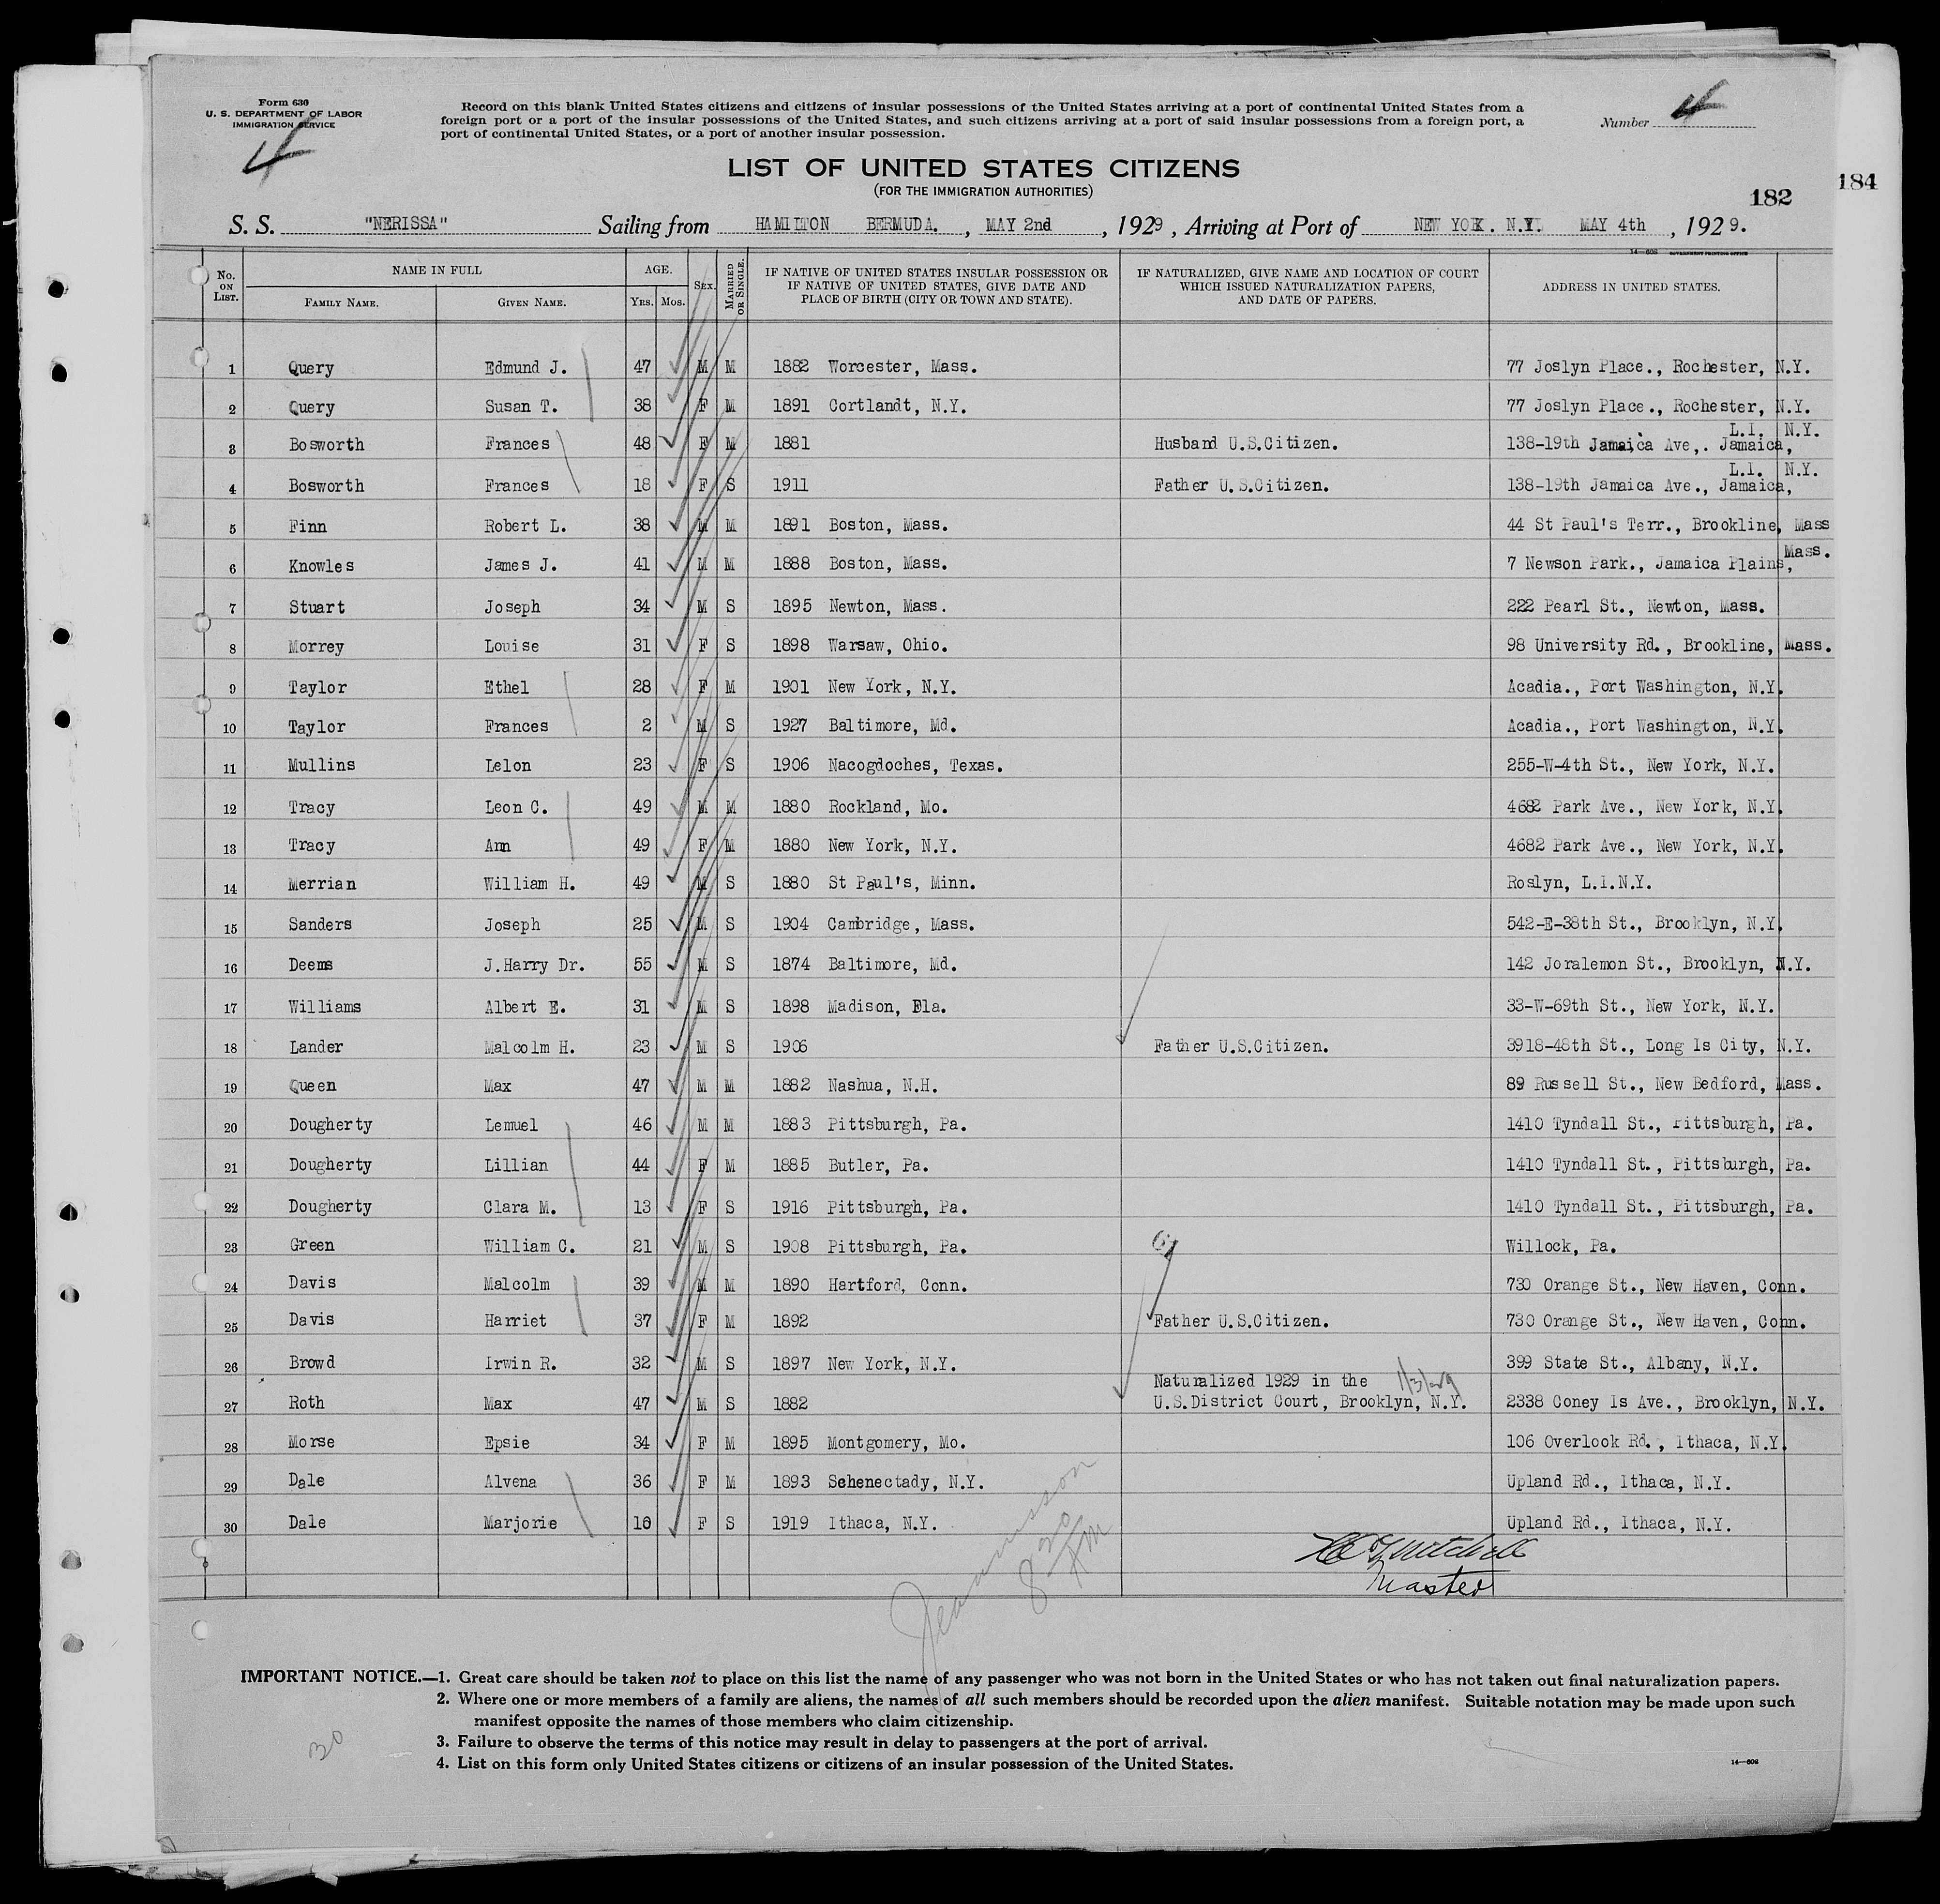 Form 630
U. S. DEPARTMENT OF LABOR
IMMIGRATION SERVICE
4
Record on this blank United States citizens and citizens of insular possessions of the United States arriving at a port of continental United States from a
foreign port or a port of the insular possessions of the United States, and such citizens arriving at a port of said insular possessions from a foreign port, a
port of continental United States, or a port of another insular possession.
Number 4
LIST OF UNITED STATES CITIZENS
(FOR THE IMMIGRATION AUTHORITIES)
182
184
S. S. "NERISSA" Sailing from HAMILTON BERMUDA. , MAY 2nd , 1929 , Arriving at Port of NEW YORK. N.Y. MAY 4th , 1929.
14—608 GOVERNMENT PRINTING OFFICE
No. ON LIST. NAME IN FULL FAMILY NAME. GIVEN NAME. AGE. YRS. MOS. SEX. MARRIED OR SINGLE. IF NATIVE OF UNITED STATES INSULAR POSSESSION OR IF NATIVE OF UNITED STATES, GIVE DATE AND PLACE OF BIRTH (CITY OR TOWN AND STATE). IF NATURALIZED, GIVE NAME AND LOCATION OF COURT WHICH ISSUED NATURALIZATION PAPERS, AND DATE OF PAPERS. ADDRESS IN UNITED STATES.
1 Query Edmund J. 47 M M 1882 Worcester, Mass. 77 Joslyn Place., Rochester, N.Y.
2 Query Susan T. 38 F M 1891 Cortlandt, N.Y. 77 Joslyn Place., Rochester, N.Y.
3 Bosworth Frances 48 F M 1881 Husband U.S.Citizen. 138-19th Jamaica Ave,. Jamaica, L.I. N.Y.
4 Bosworth Frances 18 F S 1911 Father U.S.Citizen. 138-19th Jamaica Ave., Jamaica, L.I. N.Y.
5 Finn Robert L. 38 M M 1891 Boston, Mass. 44 St Paul's Terr., Brookline, Mass
6 Knowles James J. 41 M M 1888 Boston, Mass. 7 Newson Park., Jamaica Plains, Mass.
7 Stuart Joseph 34 M S 1895 Newton, Mass. 222 Pearl St., Newton, Mass.
8 Morrey Louise 31 F S 1898 Warsaw, Ohio. 98 University Rd., Brookline, Mass.
9 Taylor Ethel 28 F M 1901 New York, N.Y. Acadia., Port Washington, N.Y.
10 Taylor Frances 2 M S 1927 Baltimore, Md. Acadia., Port Washington, N.Y.
11 Mullins Lelon 23 F S 1906 Nacogdoches, Texas. 255-W-4th St., New York, N.Y.
12 Tracy Leon C. 49 M M 1880 Rockland, Mo. 4682 Park Ave., New York, N.Y.
13 Tracy Ann 49 F M 1880 New York, N.Y. 4682 Park Ave., New York, N.Y.
14 Merrian William H. 49 M S 1880 St Paul's, Minn. Roslyn, L.I.N.Y.
15 Sanders Joseph 25 M S 1904 Cambridge, Mass. 542-E-38th St., Brooklyn, N.Y.
16 Deems J.Harry Dr. 55 M S 1874 Baltimore, Md. 142 Joralemon St., Brooklyn, N.Y.
17 Williams Albert E. 31 M S 1898 Madison, Fla. 33-W-69th St., New York, N.Y.
18 Lander Malcolm H. 23 M S 1906 Father U.S.Citizen. 3918-48th St., Long Is City, N.Y.
19 Queen Max 47 M M 1882 Nashua, N.H. 89 Russell St., New Bedford, Mass.
20 Dougherty Lemuel 46 M M 1883 Pittsburgh, Pa. 1410 Tyndall St., Pittsburgh, Pa.
21 Dougherty Lillian 44 F M 1885 Butler, Pa. 1410 Tyndall St., Pittsburgh, Pa.
22 Dougherty Clara M. 13 F S 1916 Pittsburgh, Pa. 1410 Tyndall St., Pittsburgh, Pa.
23 Green William C. 21 M S 1908 Pittsburgh, Pa. Willock, Pa.
24 Davis Malcolm 39 M M 1890 Hartford, Conn. 730 Orange St., New Haven, Conn.
25 Davis Harriet 37 F M 1892 Father U.S.Citizen. 730 Orange St., New Haven, Conn.
26 Browd Irwin R. 32 M S 1897 New York, N.Y. 399 State St., Albany, N.Y.
Naturalized 1929 in the 1/3/29
27 Roth Max 47 M S 1882 U.S.District Court, Brooklyn, N.Y. 2338 Coney Is Ave., Brooklyn, N.Y.
28 Morse Epsie 34 F M 1895 Montgomery, Mo. 106 Overlook Rd., Ithaca, N.Y.
29 Dale Alvena 36 F M 1893 Schenectady, N.Y. Upland Rd., Ithaca, N.Y.
30 Dale Marjorie 10 F S 1919 Ithaca, N.Y. Upland Rd., Ithaca, N.Y.
8 30 AM
Mitchell
Master
IMPORTANT NOTICE.—1. Great care should be taken not to place on this list the name of any passenger who was not born in the United States or who has not taken out final naturalization papers.
2. Where one or more members of a family are aliens, the names of all such members should be recorded upon the alien manifest. Suitable notation may be made upon such
manifest opposite the names of those members who claim citizenship.
3. Failure to observe the terms of this notice may result in delay to passengers at the port of arrival.
4. List on this form only United States citizens or citizens of an insular possession of the United States.
30
14—608